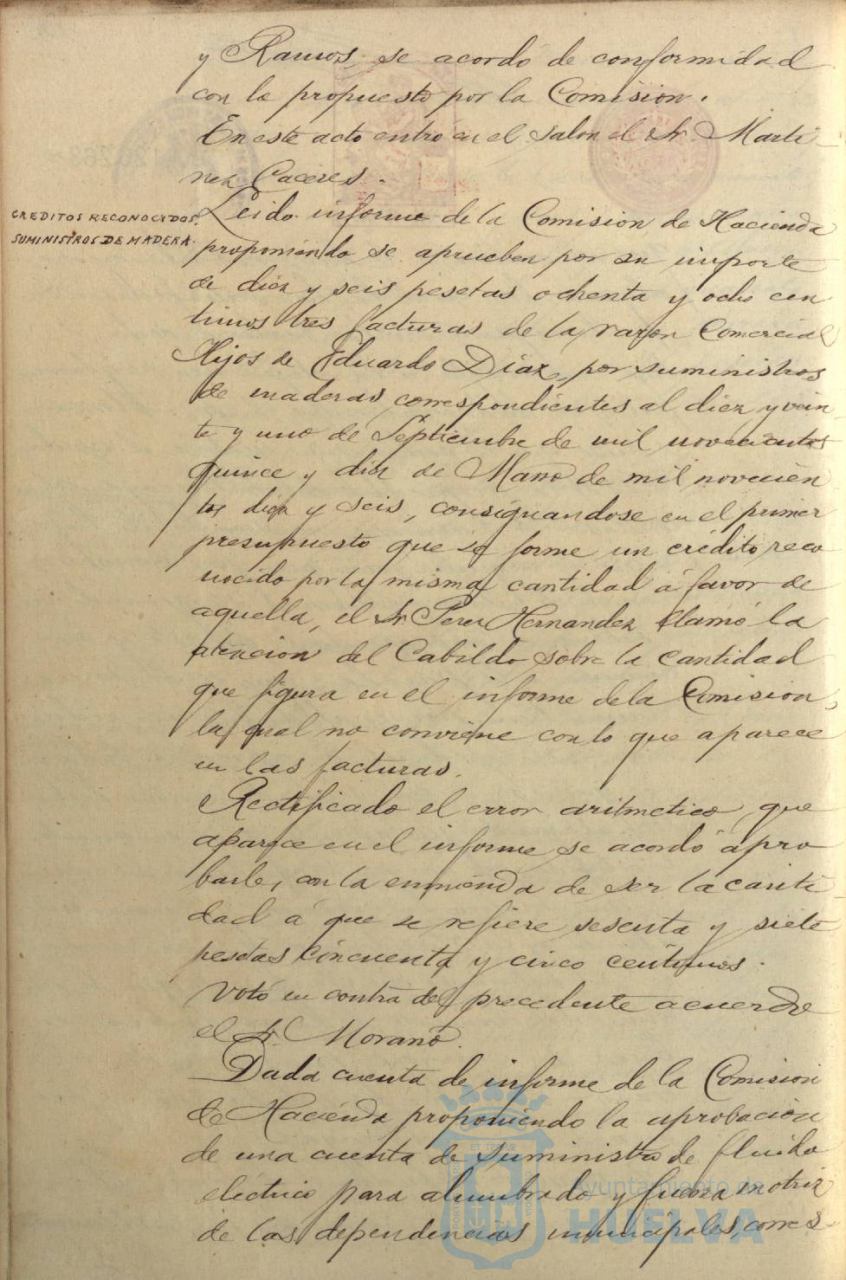 y Ramos, se acordó de conformidad
con lo propuesto por la Comision.
En este acto entro en el salon el Sr. Marti-
nez Caceres.
CREDITOS RECONOCIDOS.
SUMINISTROS DE MADERA.
Leido informe de la Comision de Hacienda
proponiendo se aprueben por su importe
de diez y seis pesetas ochenta y ocho cen
timos tres facturas de la razon Comercial
Hijos de Eduardo Díaz, por suministros
de maderas correspondientes al diez y vein
te y uno de Septiembre de mil novecientos
quince y diez de Marzo de mil novecien
tos diez y seis, consignandose en el primer
presupuesto que se forme un crédito reco
nocido por la misma cantidad á favor de
aquella, el Sr Perez Hernandez llamó la
atencion del Cabildo sobre la cantidad
que figura en el informe de la Comision,
la cual no conviene con lo que aparece
en las facturas.
Rectificado el error aritmetico, que
aparece en el informe se acordó apro
barle, con la enmienda de ser la canti-
dad á que se refiere sesenta y siete
pesetas cincuenta y cinco centimos.
Votó en contra del precedente acuerdo
el Sr. Morano.
Dada cuenta de informe de la Comision
de Hacienda proponiendo la aprobacion
de una cuenta de suministro de fluido
eléctrico para alumbrado y fuerza motriz
de las dependencias municipales, corres-
Ayuntamiento de
HUELVA